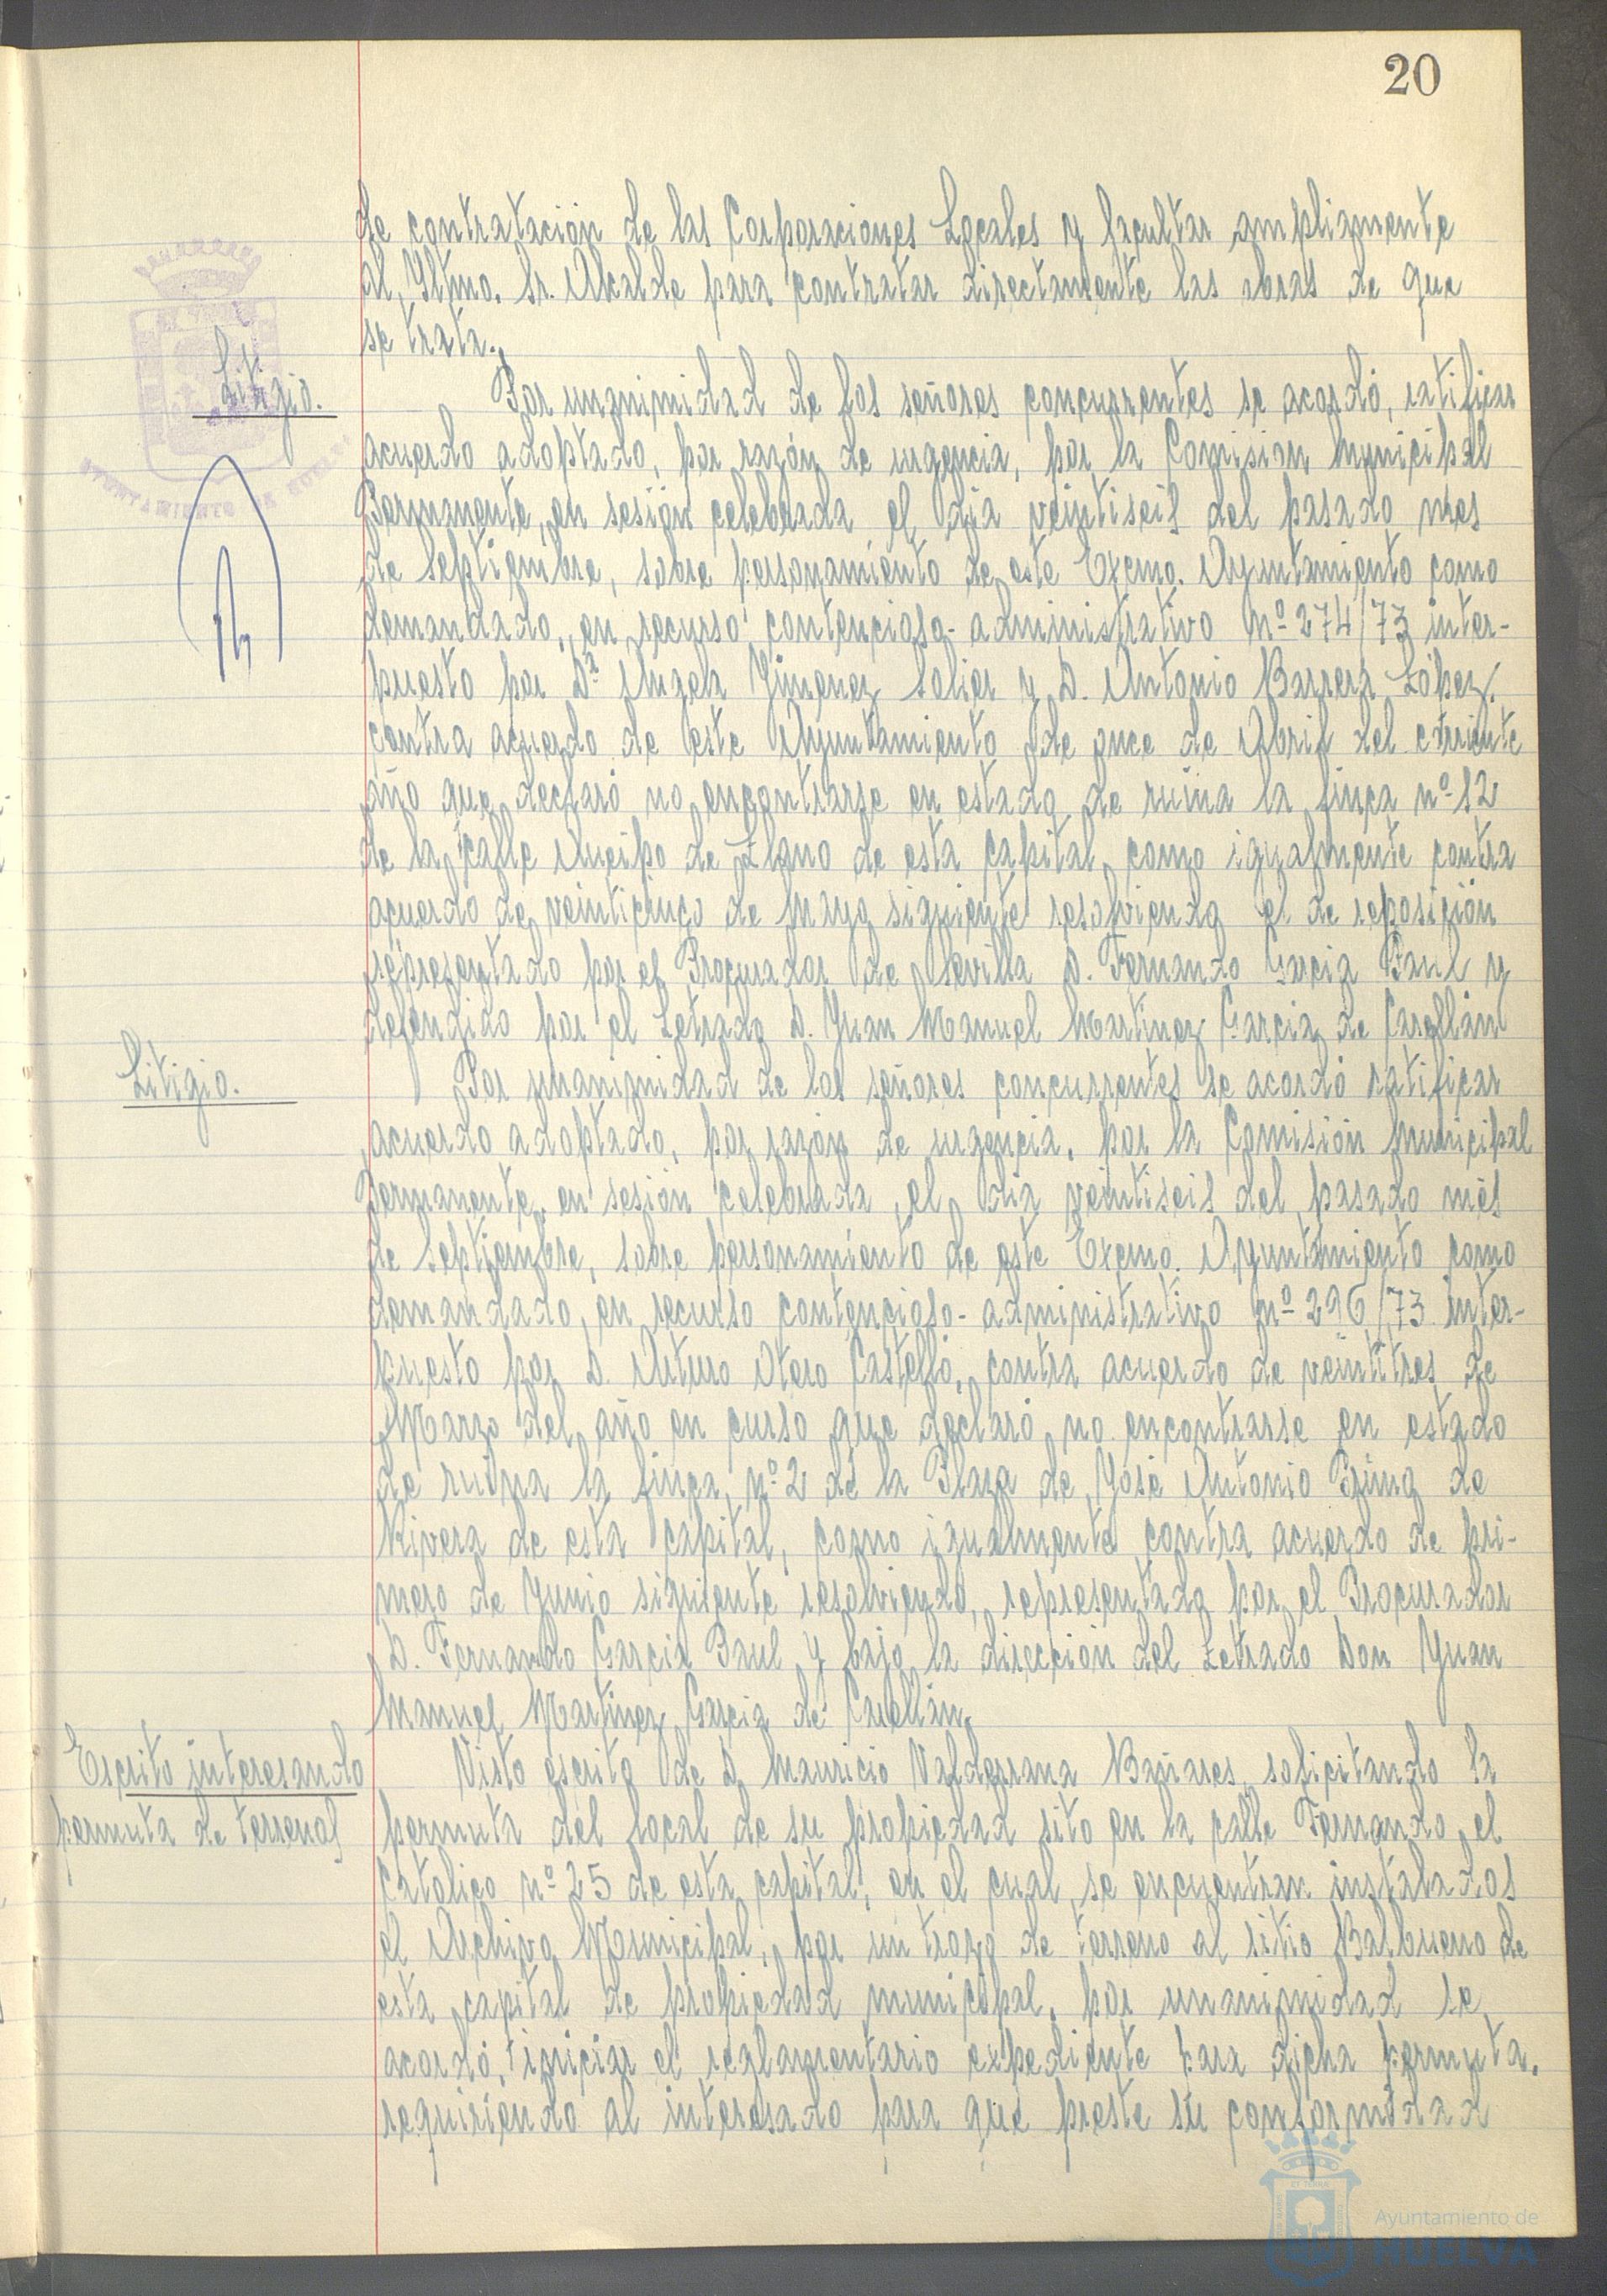 20
de contratación de las Corporaciones Locales y facultar ampliamente
al Iltmo. Sr. Alcalde para contratar directamente las obras de que
se trata.
Litigio.
Por unanimidad de los señores concurrentes se acordó, ratificar
acuerdo adoptado, por razón de urgencia, por la Comisión Municipal
Permanente, en sesión celebrada el día veintiseis del pasado mes
de Septiembre, sobre personamiento de este Excmo. Ayuntamiento como
demandado, en recurso contencioso-administrativo nº 274/73 inter-
puesto por Dª Angela Jimenez Solier y D. Antonio Barrera López,
contra acuerdo de este Ayuntamiento de once de Abril del corriente
año que declaró no encontrarse en estado de ruina la finca nº 12
de la calle Queipo de Llano de esta capital, como igualmente contra
acuerdo de veinticinco de Mayo siguiente resolviendo el de reposición
representado por el Procurador de Sevilla D. Fernando García Paul y
defendido por el Letrado D. Juan Manuel Martinez García de
Litigio.
Por unanimidad de los señores concurrentes se acordó ratificar
acuerdo adoptado, por razón de urgencia, por la Comisión Municipal
Permanente, en sesión celebrada, el día veintiseis del pasado mes
de Septiembre, sobre personamiento de este Excmo. Ayuntamiento como
demandado, en recurso contencioso-administrativo nº 296/73 inter-
puesto por D. Arturo Otero Castelló, contra acuerdo de veintitres de
Marzo del año en curso que declaró no encontrarse en estado
de ruina la finca nº 2 de la Plaza de José Antonio Primo de
Rivera de esta capital, como igualmente contra acuerdo de pri-
mero de Junio siguiente resolviendo, representado por el Procurador
D. Fernando García Paul y bajo la dirección del Letrado Don Juan
Manuel Martinez García de
Escrito interesando
permuta de terrenos
Visto escrito de D. Mauricio Valderrama Bañares, solicitando la
permuta del local de su propiedad sito en la calle Fernando el
Católico nº 25 de esta capital, en el cual se encuentran instalados
el Archivo Municipal, por un trozo de terreno al sitio Balbueno de
esta capital de propiedad municipal, por unanimidad se
acordó, iniciar el reglamentario expediente para dicha permuta,
requiriendo al interesado para que preste su conformidad
Ayuntamiento de
HUELVA